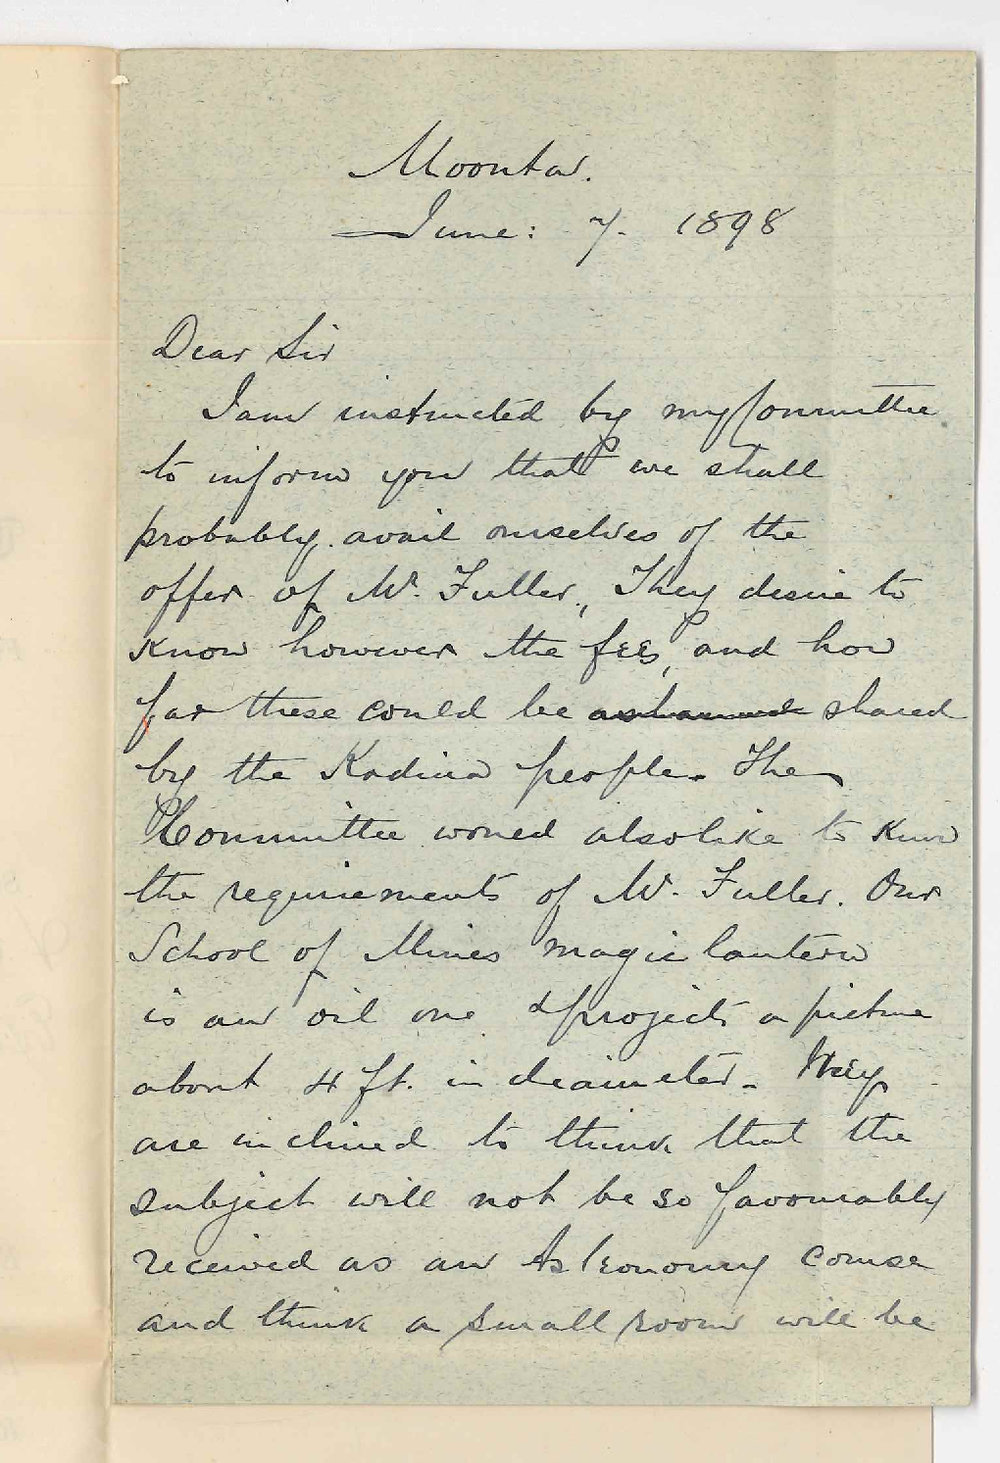 Moonta.
June: 7. 1898
Dear Sir
I am instructed by my Committee
to inform you that we shall
probably avail ourselves of the
offer of Mr. Fuller, They desire to
know however the fees, and how
far these could be shared
by the Kadina people. The
Committee would also like to know
the requirements of Mr. Fuller. Our
School of Mines magic lantern
is an oil one & projects a picture
about 4 ft. in diameter. They
are inclined to think that the
subject will not be so favourably
received as an Astronomy course
and think a small room will be